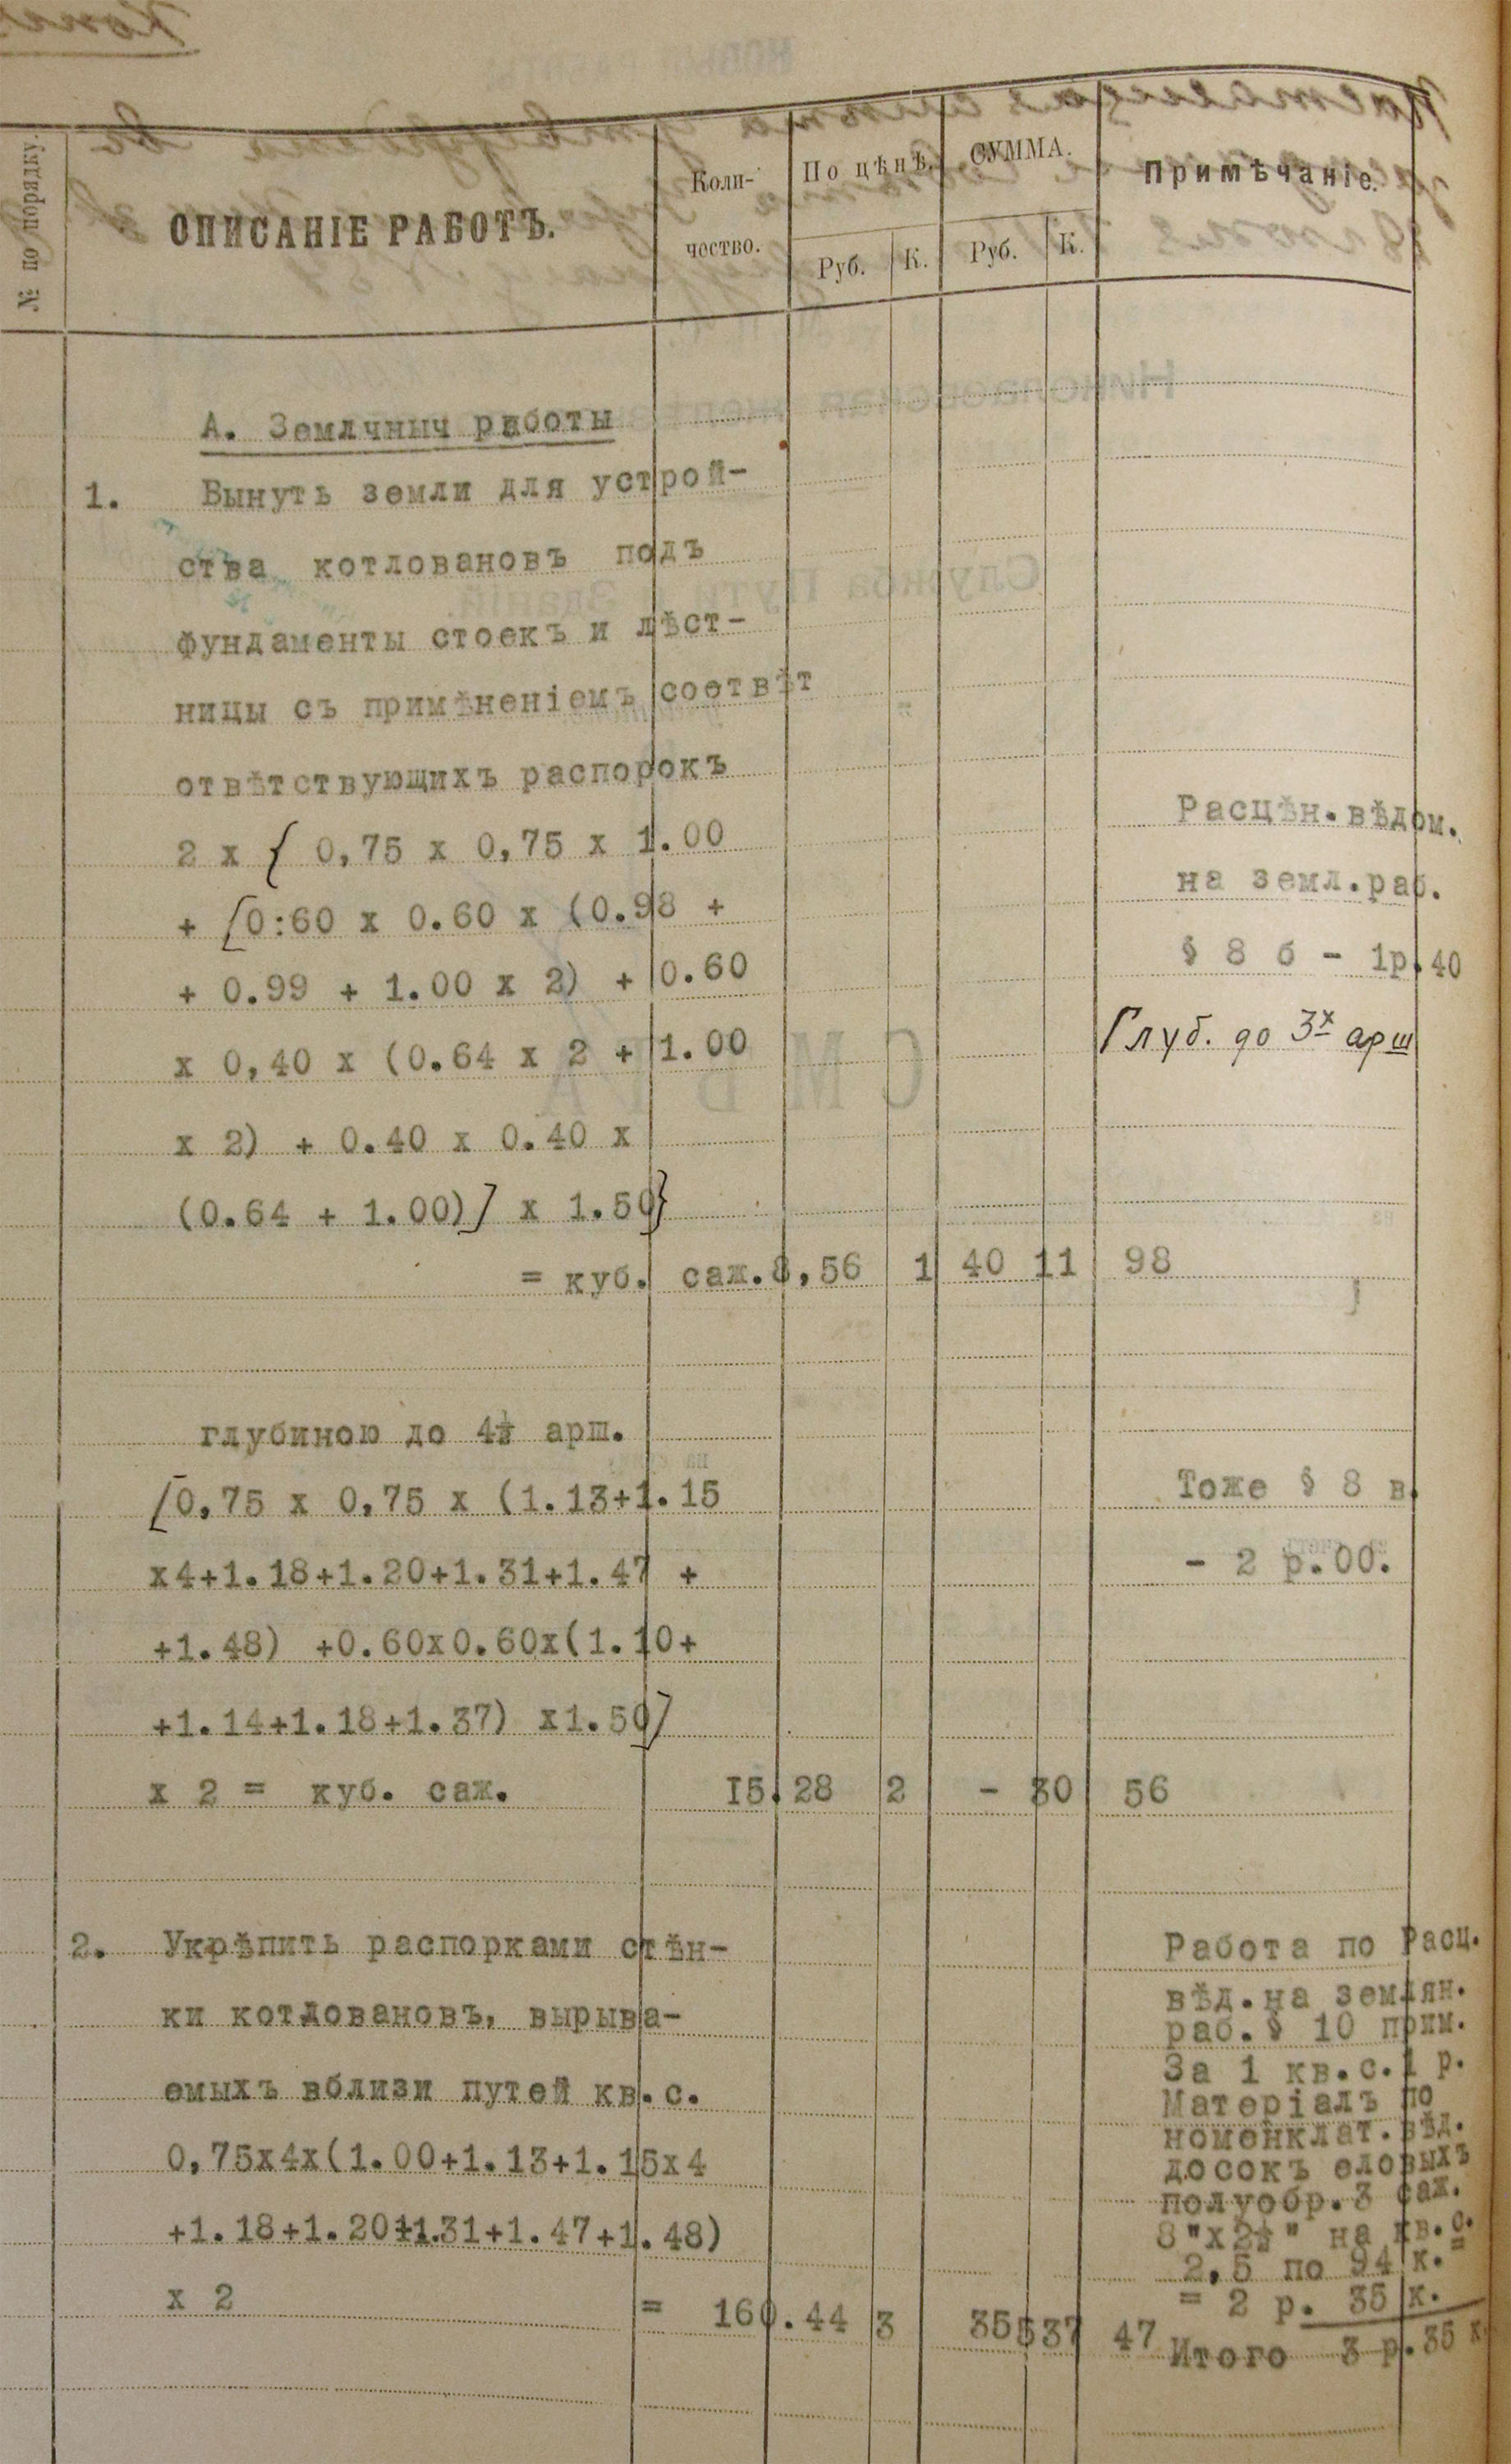 № по порядку.
ОПИСАНІЕ РАБОТЪ.
Коли-
чество.
По цѣнѣ.
Руб. К.
СУММА.
Руб. К.
Примѣчаніе.
А. Землчныч рвботы
1. Вынуть земли для устрой-
ства котловановъ подъ
фундаменты стоекъ и лѣст-
ницы съ примѣненіемъ соотвѣт
отвѣтствующихъ распорокъ
2 х { 0,75 х 0,75 х 1.00
+ [0:60 х 0.60 х (0.98 +
+ 0.99 + 1.00 х 2) + 0.60
х 0,40 х (0.64 х 2 + 1.00
х 2) + 0.40 х 0.40 х
(0.64 + 1.00)] х 1.50}
= куб. саж.8,56 1 40 11 98
Расцѣн.вѣдом.
на земл.раб.
§ 8 б - 1р.40
Глуб. до 3х арш
глубиною до 4½ арш.
[0,75 х 0,75 х (1.13+1.15
х4+1.18+1.20+1.31+1.47 +
+1.48) +0.60х0.60х(1.10+
+1.14+1.18+1.37) х1.50]
х 2 = куб. саж. I5.28 2 - 30 56
Тоже § 8 в.
- 2 р.00.
2. Укрѣпить распорками стѣн-
ки котловановъ, вырыва-
емыхъ вблизи путей кв.с.
0,75х4х(1.00+1.13+1.15х4
+1.18+1.20+1.31+1.47+1.48)
х 2 = 160.44 3 35 537 47
Работа по Расц.
вѣд.на землян.
раб.§ 10 прим.
За 1 кв.с.1 р.
Матеріалъ по
номенклат.вѣд.
досокъ еловыхъ
полуобр.3 саж.
8"х2½" на кв.с.
2,5 по 94 к.=
= 2 р. 35 к.
Итого 3 р.35 к.